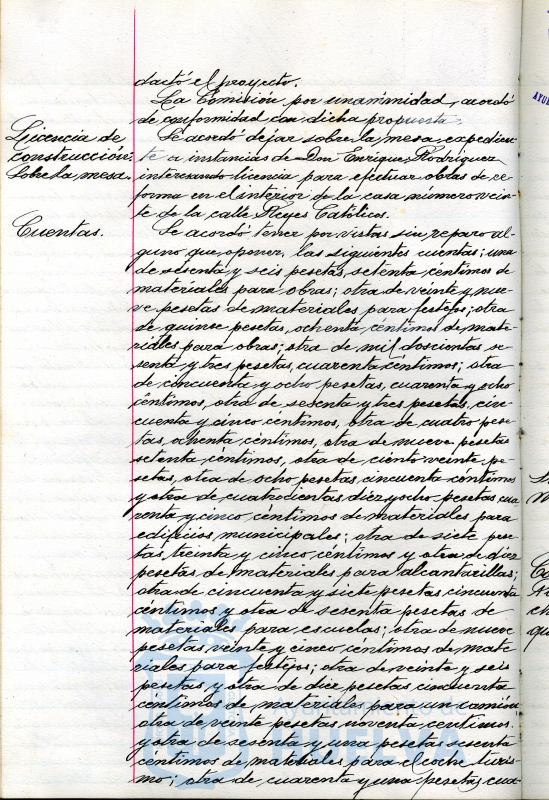 dactó el proyecto.
La Comisión, por unanimidad, acordó
de conformidad con dicha propuesta.
Licencia de
construcción.
Sobre la mesa.
Se acordó dejar sobre la mesa, expedien-
te a instancias de Don Enrique Rodríguez
interesando licencia para efectuar obras de re-
forma en el interior de la casa número vein-
te de la calle Reyes Católicos.
Cuentas.
Se acordó tener por vistas sin reparo al-
guno que oponer, las siguientes cuentas; una
de sesenta y seis pesetas, setenta céntimos de
materiales para obras; otra de veinte y nue-
ve pesetas de materiales para festejos; otra
de quince pesetas, ochenta céntimos de mate-
riales para obras; otra de mil doscientas, se-
senta y tres pesetas, cuarenta céntimos; otra
de cincuenta y ocho pesetas, cuarenta y ocho
céntimos, otra de sesenta y tres pesetas, cin-
cuenta y cinco céntimos, otra de cuatro pese-
tas, ochenta céntimos, otra de nueve pesetas
setenta céntimos, otra de ciento veinte pe-
setas, otra de ocho pesetas, cincuenta céntimos
y otra de cuatrocientas diez y ocho pesetas, cua-
renta y cinco céntimos de materiales para
edificios municipales; otra de siete pese-
tas, treinta y cinco céntimos y otra de diez
pesetas, de materiales para alcantarillas;
otra de cincuenta y siete pesetas, cincuenta
céntimos y otra de sesenta pesetas de
materiales para escuelas; otra de nueve
pesetas, veinte y cinco céntimos de mate-
riales para festejos; otra de veinte y seis
pesetas y otra de diez pesetas cincuenta
céntimos de materiales para un camión
otra de veinte pesetas, noventa céntimos.
y otra de sesenta y una pesetas sesenta
céntimos de materiales para el coche turis-
mo; otra de cuarenta y una pesetas, cua-
Ayuntamiento de
HUELVA